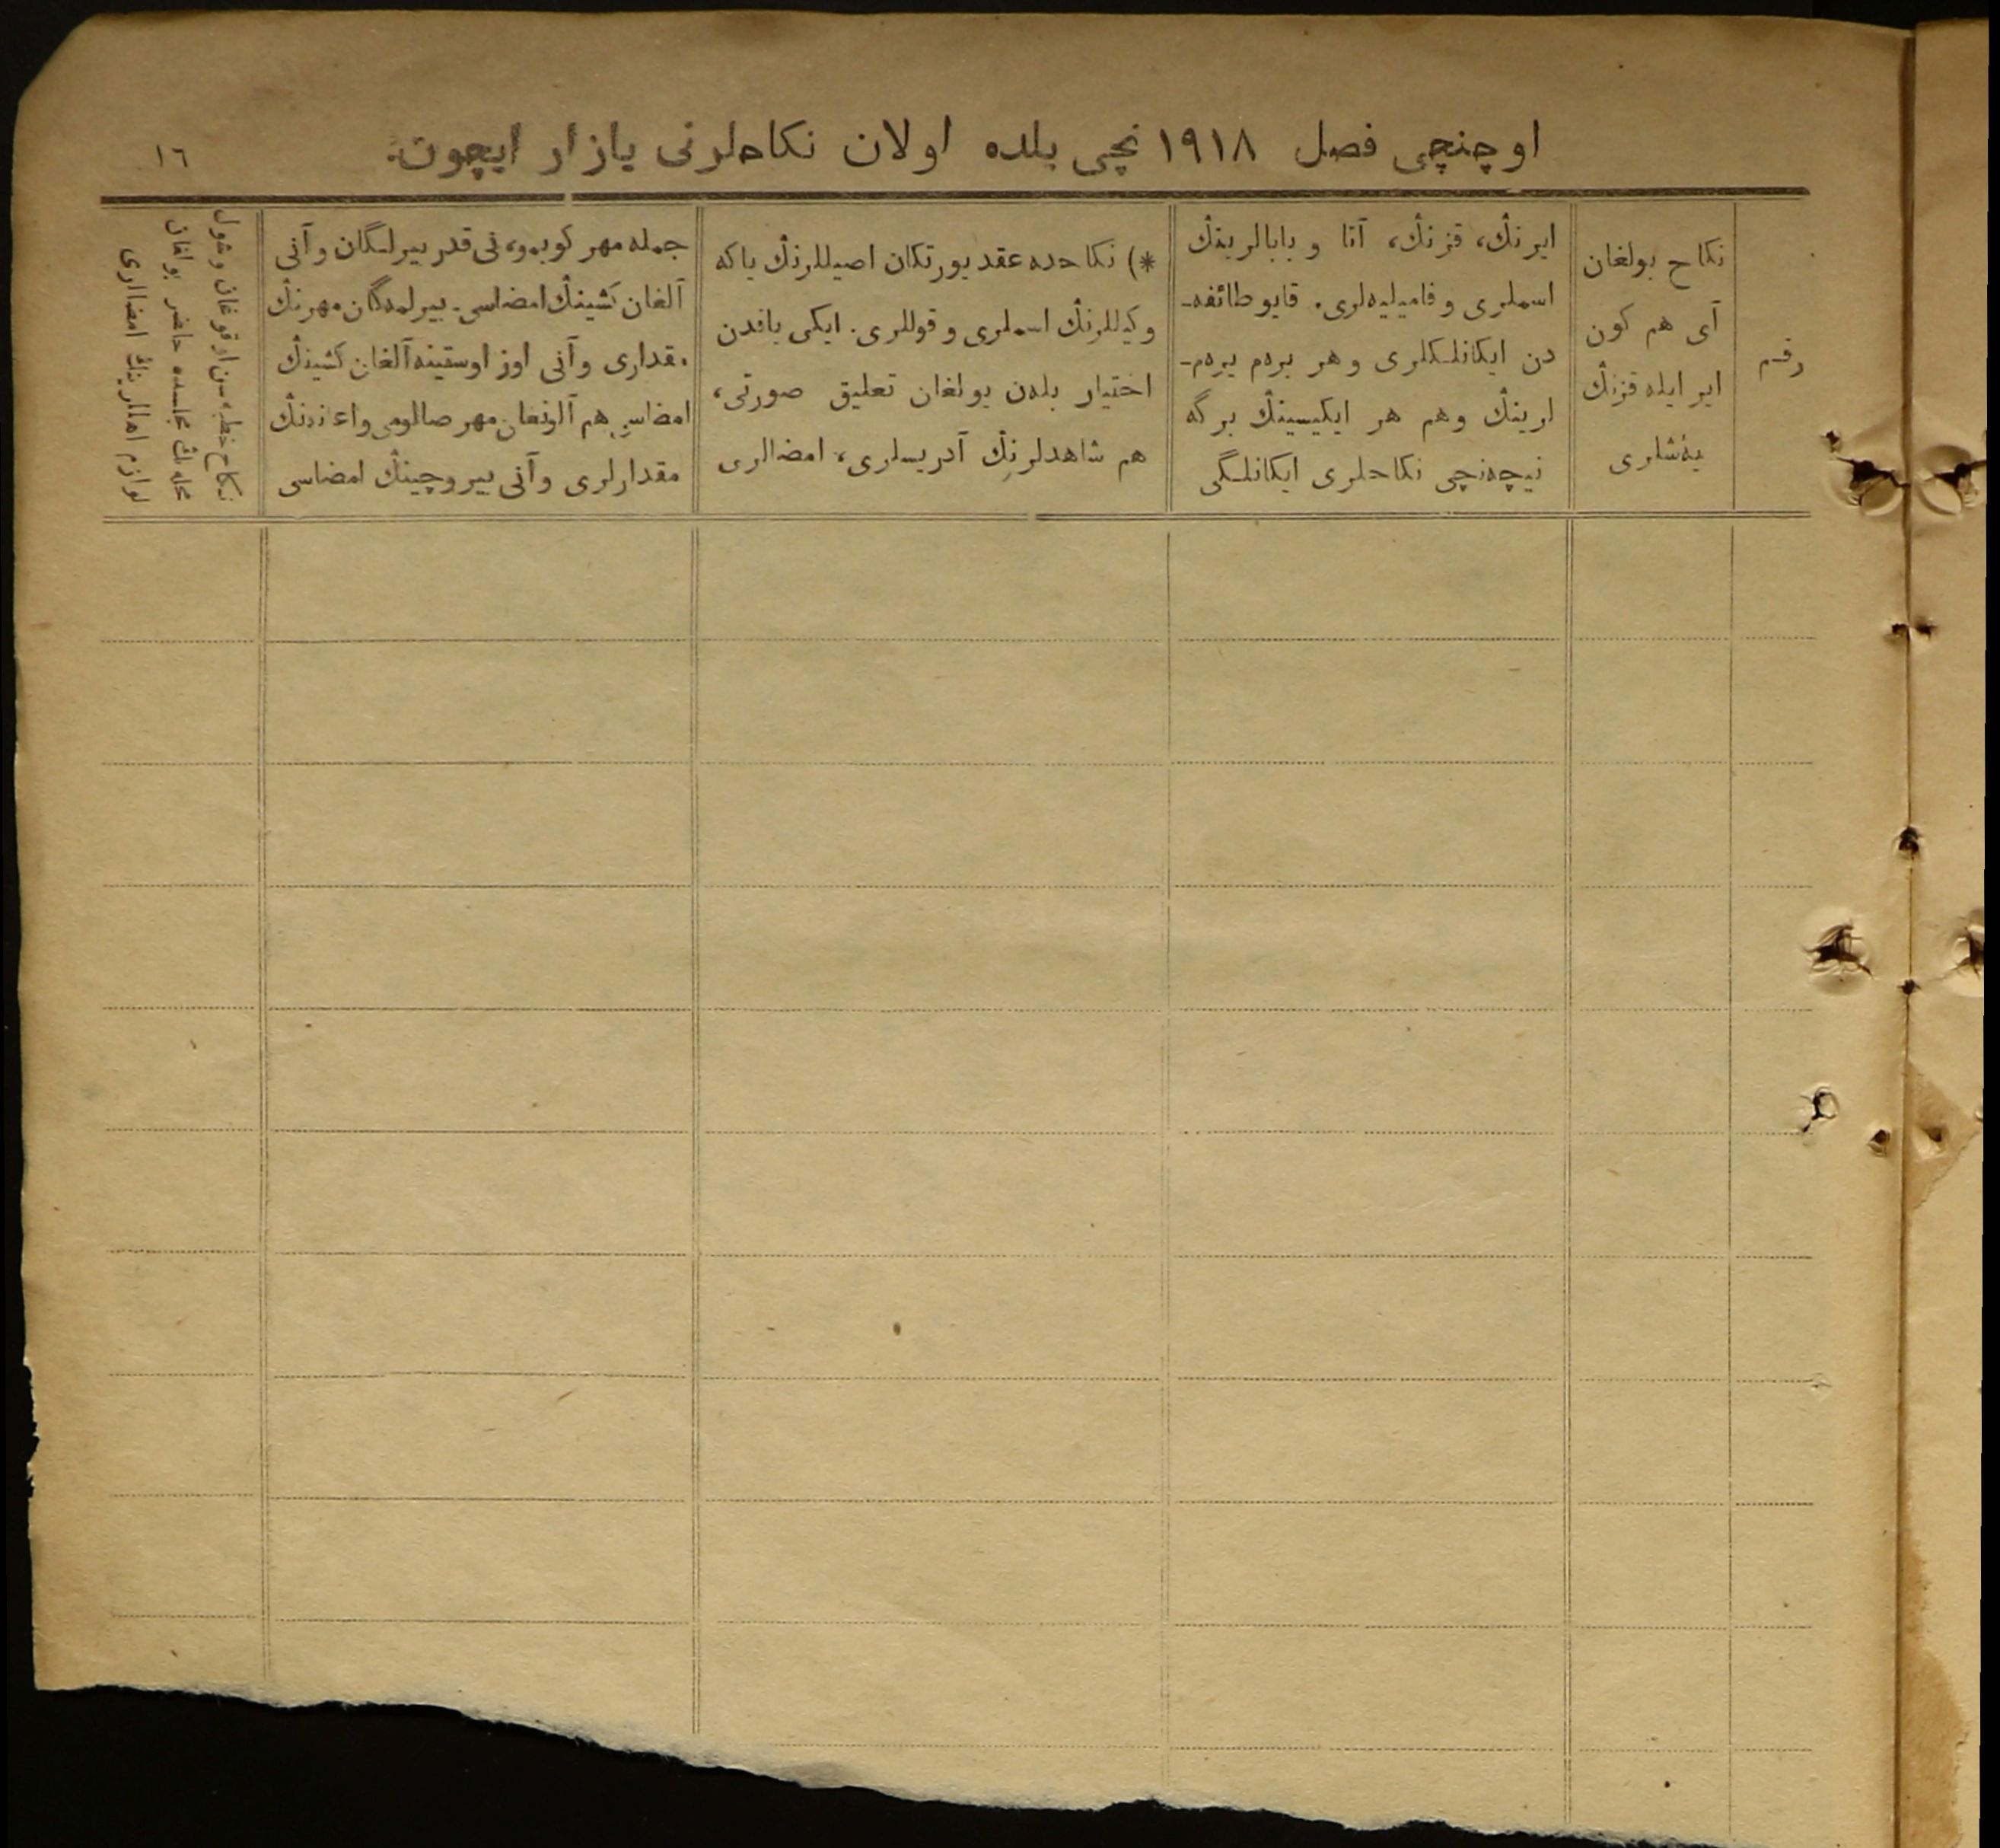 اوچنچی فصل ۱۹۱۸ نچی یلده اولان نکاحلرنی یازار ایچون.
۱٦
رقم
نکاح بولغان
آی هم کون
ایر ایله قزنڭ
یەشلری
ایرنڭ، قزنڭ، آتا و بابالرینڭ
اسملری و فامیلیەلری. قایو طائفه-
دن ایکانلکلری و هر بردم یردم-
لرینڭ وهم هر ایکیسینڭ برگه
نیچەنچی نکاحلری ایکانلگی
*) نکاحده عقد یورتکان اصیللرنڭ یاکه
وکیللرنڭ اسملری و قوللری. ایکی یاقدن
اختیار بلەن بولغان تعلیق صورتی،
هم شاهدلرنڭ آدریسلری، امضالری
جمله مهر کوبمو، نی قدر بیرلگان و آنی
آلغان کشینڭ امضاسی. بیرلمەگان مهرنڭ
مقداری و آنی اوز اوستینه آلغان کشینڭ
امضاسی هم آلونغان مهر صالومی واعانەنڭ
مقدارلری و آنی بیروچینڭ امضاسی
نکاح خطبەسن اوقوغان و شول
محلەنڭ مجلسده حاضر بولغان
لوازم اهللرینڭ امضالری